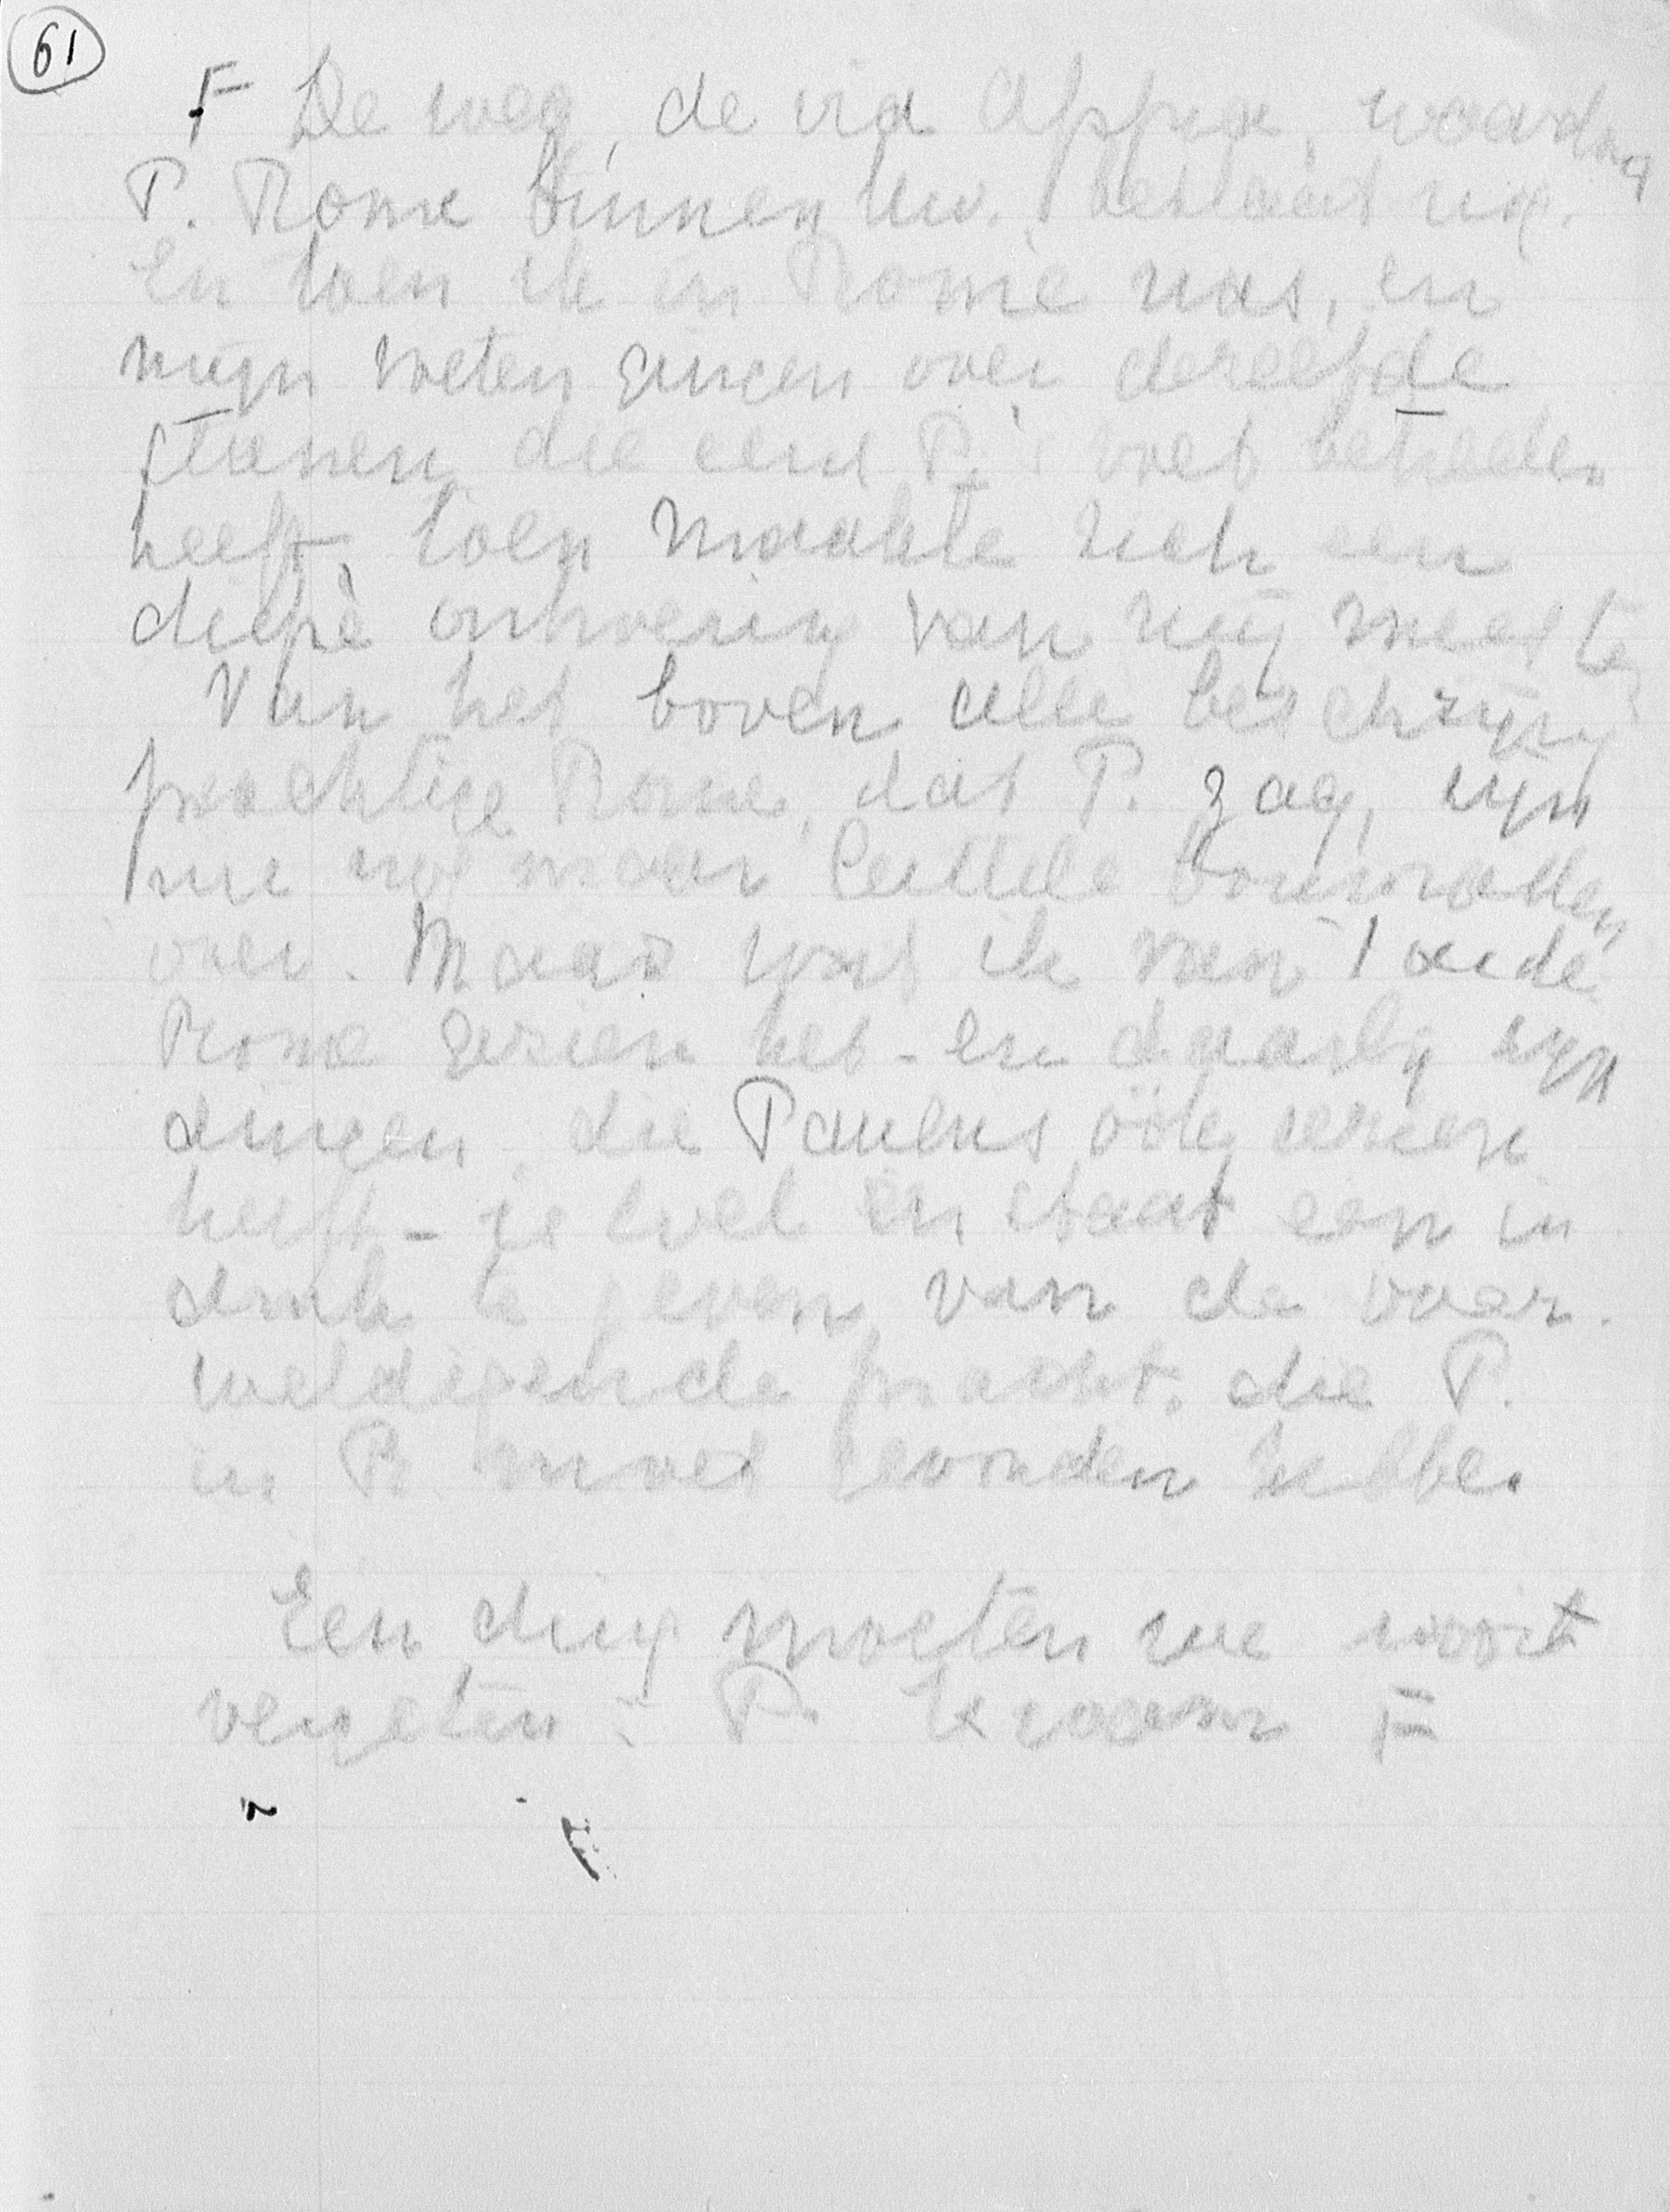 61
F De weg, de via Appia, waarlangs
P. Rome binnenkw. bestaat nog.
En toen ik in Rome was, en
mijn voeten gingen over dezelfde
steenen, die eens P.'s voet betreden
heeft, toen maakte zich een
diepe ontroering van mij meester
Van het boven alle beschrijving
prachtige Rome, dat P. zag, zijn
nu nog maar enkele bouwvallen
over. Maar wat ik van 't oude
Rome gezien heb - en daarbij zijn
dingen, die Paulus óók gezien
heeft - is wel in staat een in
druk te geven van de over-
weldigende pracht, die P.
in R. moet gevonden hebben
Een ding moeten we nooit
vergeten: P. kwam F